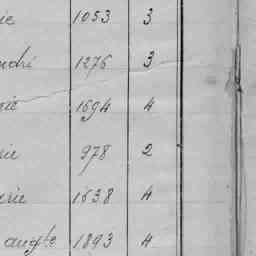 ie 1053 3
ndré 1276 3
rie 1694 4
rie 978 2
rie 1638 4
augte 1893 4